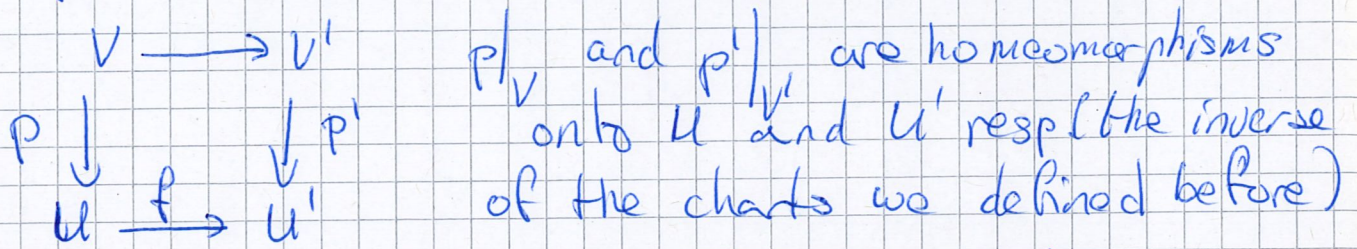 V → V' p|_V and p'|_V' are homeomorphisms
p ↓ ↓ p' onto U and U' resp (the inverse
U →^f U' of the charts we defined before)